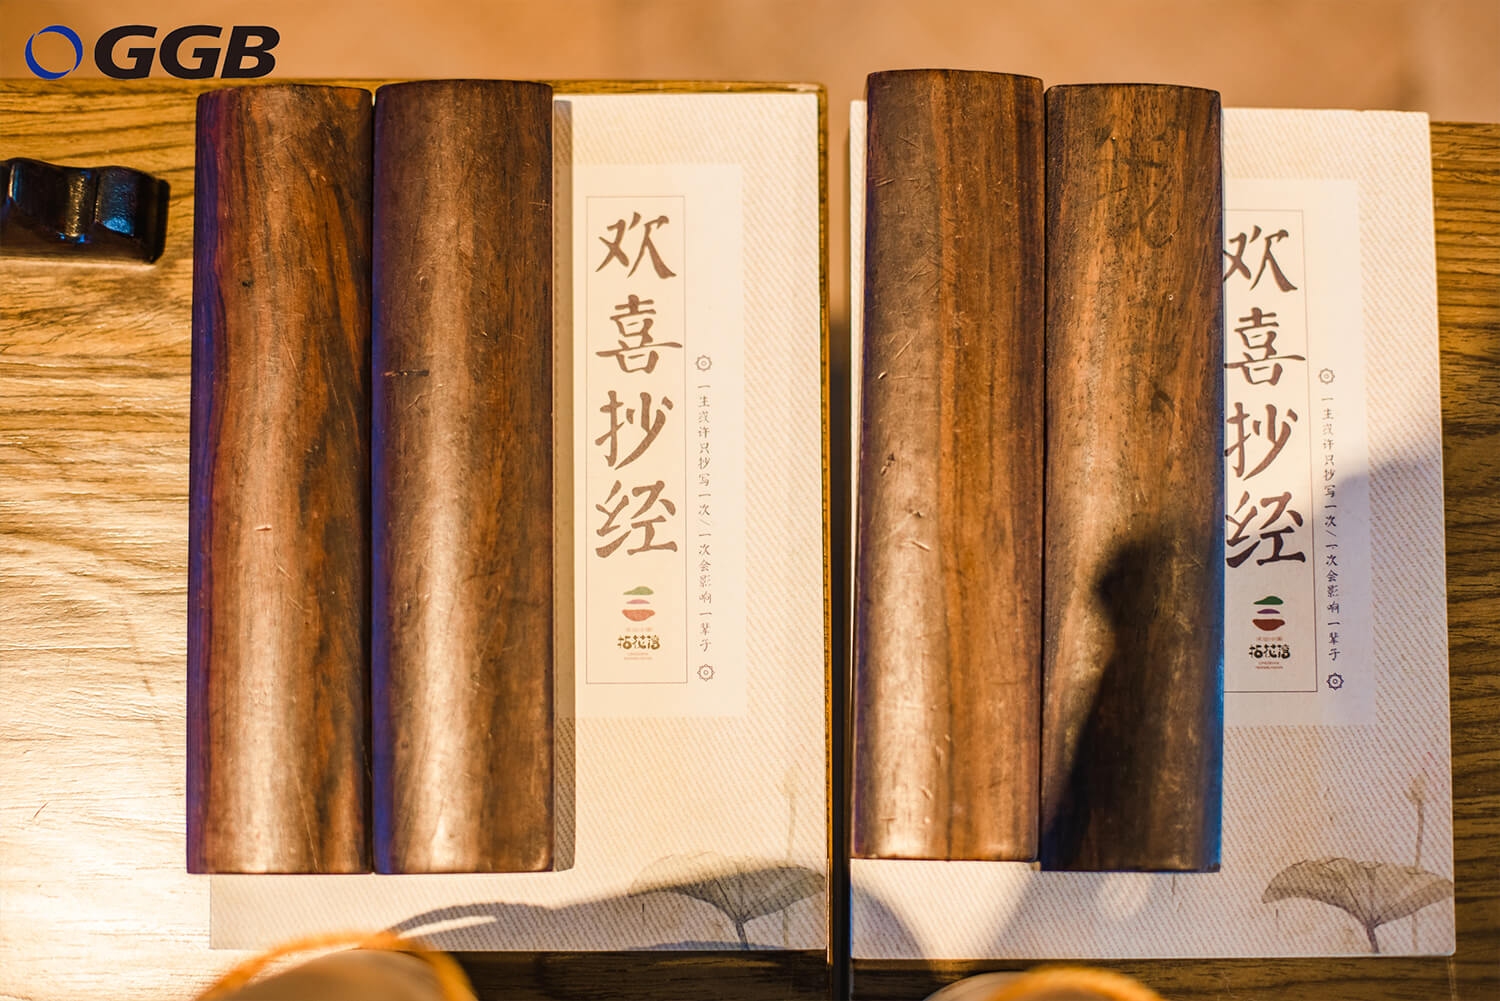 GGB
欢喜抄经
一生或许只抄写一次/一次会影响一辈子
拈花湾
欢喜抄经
一生或许只抄写一次/一次会影响一辈子
拈花湾